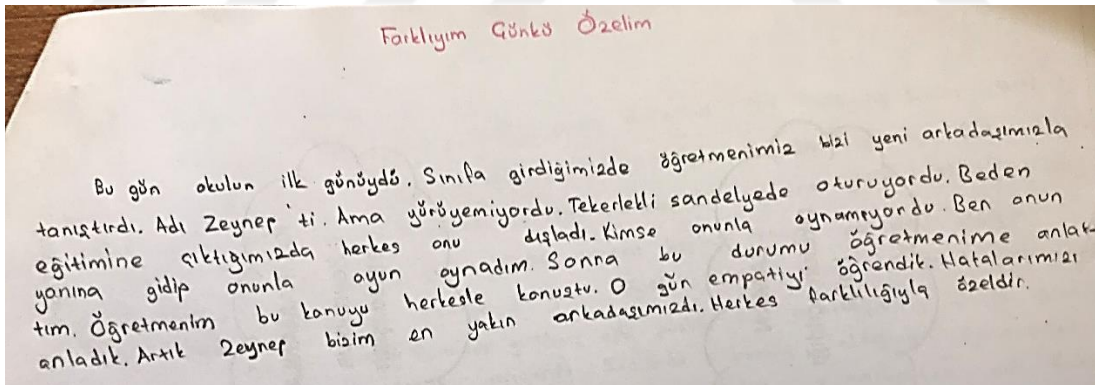 Farklıyım Günkü Özelim
Bu gün okulun ilk günüydü. Sınıfa girdiğimizde öğretmenimiz bizi yeni arkadaşımızla
tanıştırdı. Adı Zeynep'ti. Ama yürüyemiyordu. Tekerlekli sandelyede oturuyordu. Beden
eğitimine çıktığımızda herkes onu dışladı. Kimse onunla oynamıyordu. Ben onun
yanına gidip onunla oyun oynadım. Sonna bu durumu öğretmenime anlat-
tım. Öğretmenim bu konuyu herkesle konuştu. O gün empatiyi öğrendik. Hatalarımızı
anladık. Artık Zeynep bizim en yakın arkadaşımızdı. Herkes farklılığıyla özeldir.